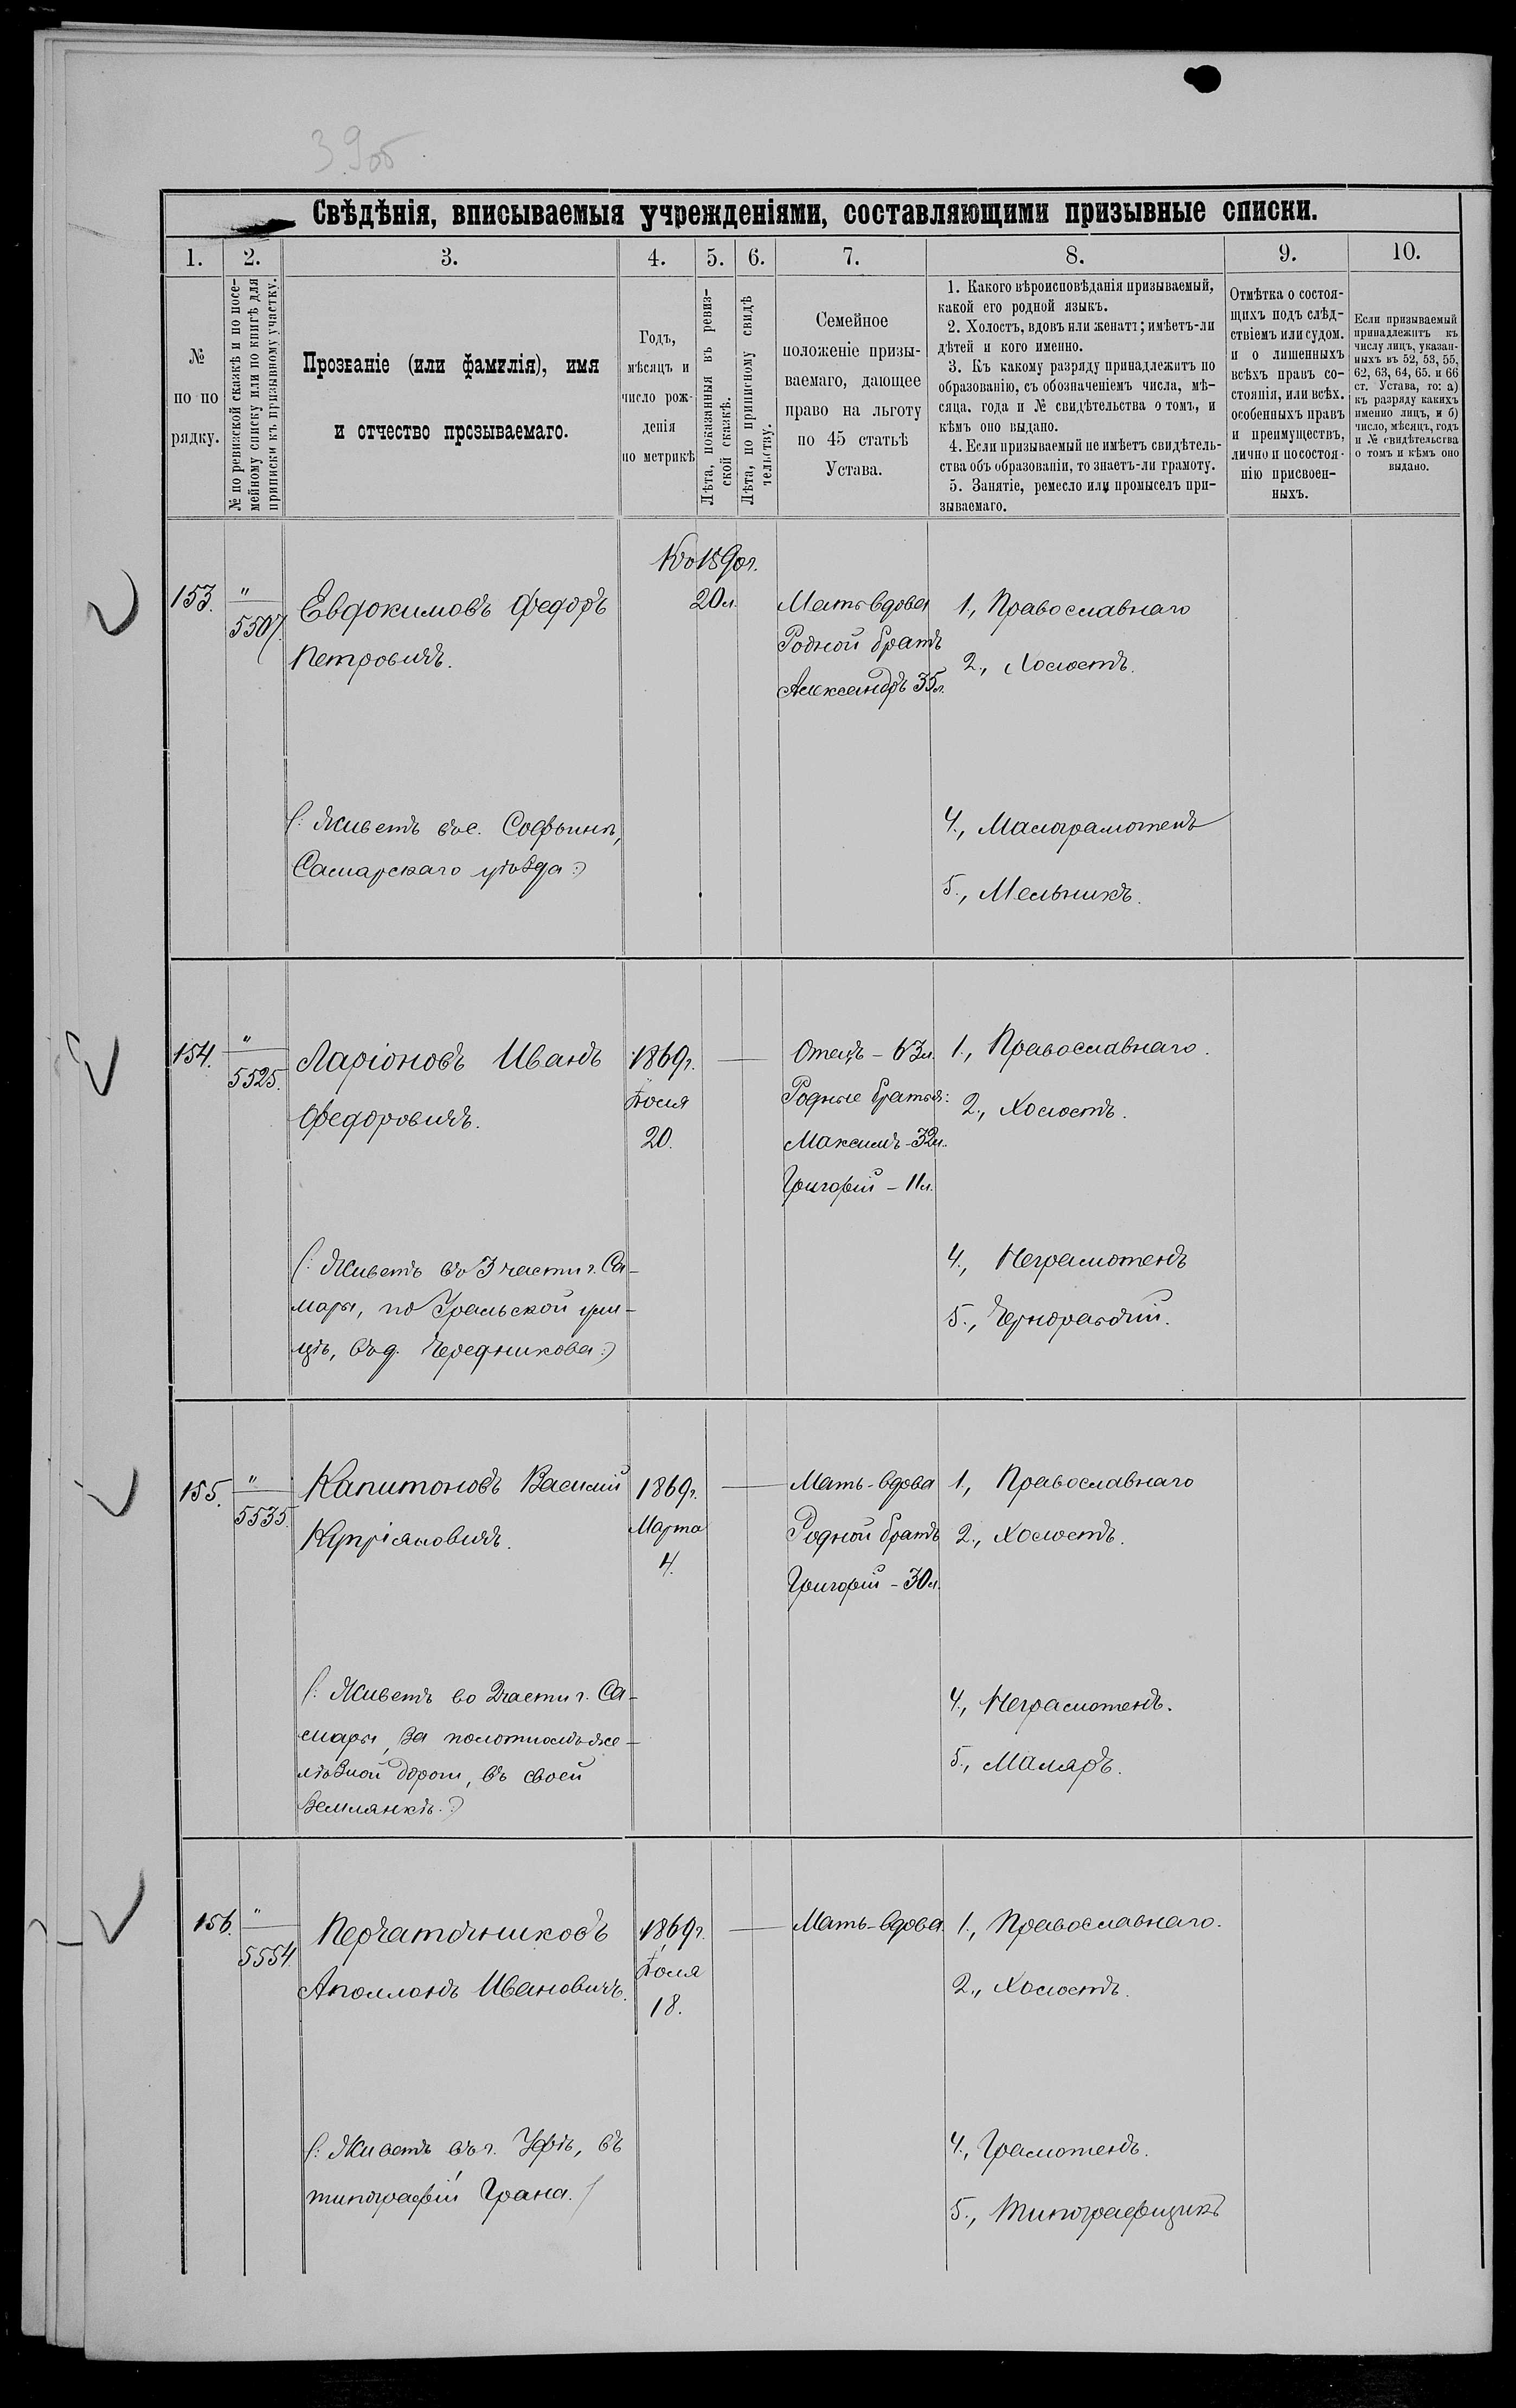 39об.
Свѣдѣнія, вписываемыя учрежденіями, составляющими призывные списки.
1. 2. 3. 4. 5. 6. 7. 8. 9. 10.
№
по по
рядку.
№ по ревизской сказкѣ и по посе-
мейному списку или по книгѣ для
приписки къ призывному участку.
Прозваніе (или фамилія), имя
и отчество прозываемаго.
Годъ,
мѣсяцъ и
число рож-
денія
по метрикѣ
Лѣта, показанныя въ ревиз-
ской сказкѣ.
Лѣта, по приписному свидѣ
тельству.
Семейное
положеніе призы-
ваемаго, дающее
право на льготу
по 45 статьѣ
Устава.
1. Какого вѣроисповѣданія призываемый,
какой его родной языкъ.
2. Холостъ, вдовъ или женатъ; имѣетъ-ли
дѣтей и кого именно.
3. Къ какому разряду принадлежитъ по
образованію, съ обозначеніемъ числа, мѣ-
сяца. года и № свидѣтельства о томъ, и
кѣмъ оно выдано.
4. Если призываемый не имѣетъ свидѣтель-
ства объ образованіи, то знаетъ-ли грамоту.
5. Занятіе, ремесло или промыселъ при-
зываемаго.
Отмѣтка о состоя-
щихъ подъ слѣд-
ствіемъ или судом.
и о лишенныхъ
всѣхъ правъ со-
стоянія, или всѣх.
особенныхъ правъ
и преимуществъ,
лично и по состоя-
нію присвоен-
ныхъ.
Если призываемый
принадлежитъ къ
числу лицъ, указан-
ныхъ въ 52, 53, 55,
62, 63, 64, 65. и 66
ст. Устава, то: а)
къ разряду какихъ
именно лицъ, и б)
число, мѣсяцъ, годъ
и № свидѣтельства
о томъ и кѣмъ оно
выдано.
153. "
5507.
Евдокимовъ Федоръ
Петровичъ.
(: Живетъ въ с. Софьинѣ,
Самарскаго уѣзда :)
Ко 1890 г.
20 л.
Мать вдова
Родной братъ
Александръ 35 л.
1., Православнаго
2., Холостъ.
4., Малограмотенъ
5., Мельникъ.
154. "
5525.
Ларіоновъ Иванъ
Федоровичъ.
(: Живетъ въ 3 части г. Са-
мары, по Уральской ули-
цѣ, въ д. Чередникова :)
1869 г.
Іюля
20.
Отецъ - 63 л.
Родные братья:
Максимъ - 32 л.
Григорій - 11 л.
1., Православнаго.
2., Холостъ.
4., Неграмотенъ
5., Чернорабочій.
155. "
5535.
Капитоновъ Василий
Купріяновичъ.
(: Живетъ во 2 части г. Са-
мары, за полотномъ же-
лѣзной дороги, въ своей
землянкѣ. :)
1869 г.
Марта
4.
Мать-вдова
Родной братъ
Григорій - 30 л.
1., Православнаго
2., Холостъ.
4., Неграмотенъ.
5., Маляръ.
156. "
5554.
Перчаточниковъ
Аполлонъ Ивановичъ.
(: Живетъ въ г. Уфѣ, въ
типографіи Грана. /
1869 г.
Іюля
18.
Мать-вдова.
1., Православнаго.
2., Холостъ.
4., Грамотенъ.
5., Типографщикъ